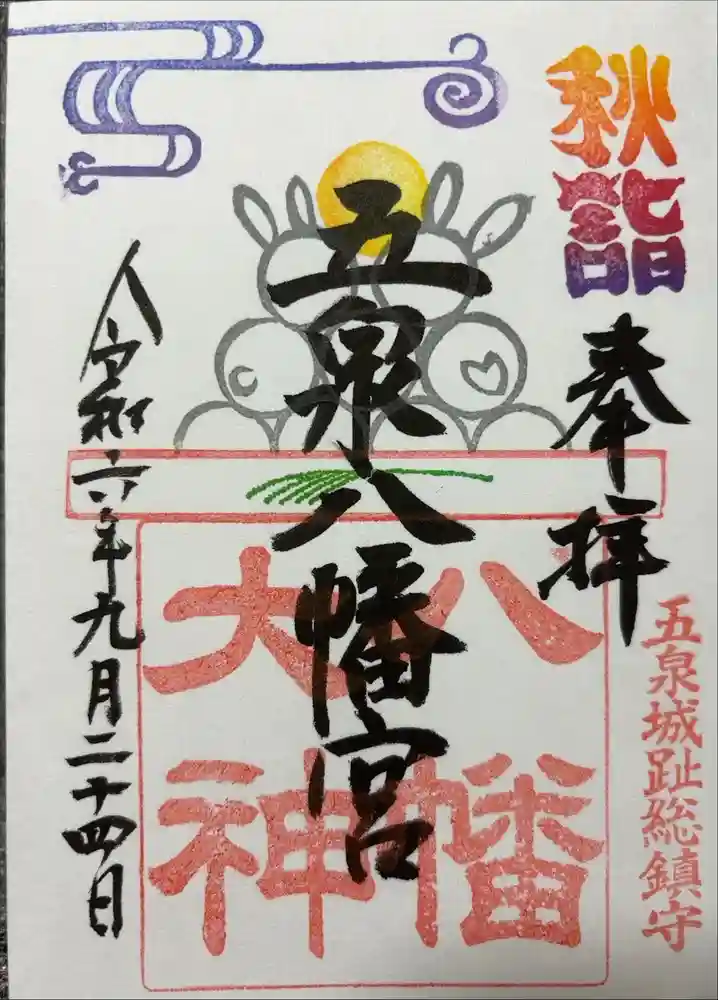 秋詣
奉拝
五泉城趾総鎮守
五泉八幡宮
八幡
大神
令和六年九月二十四日